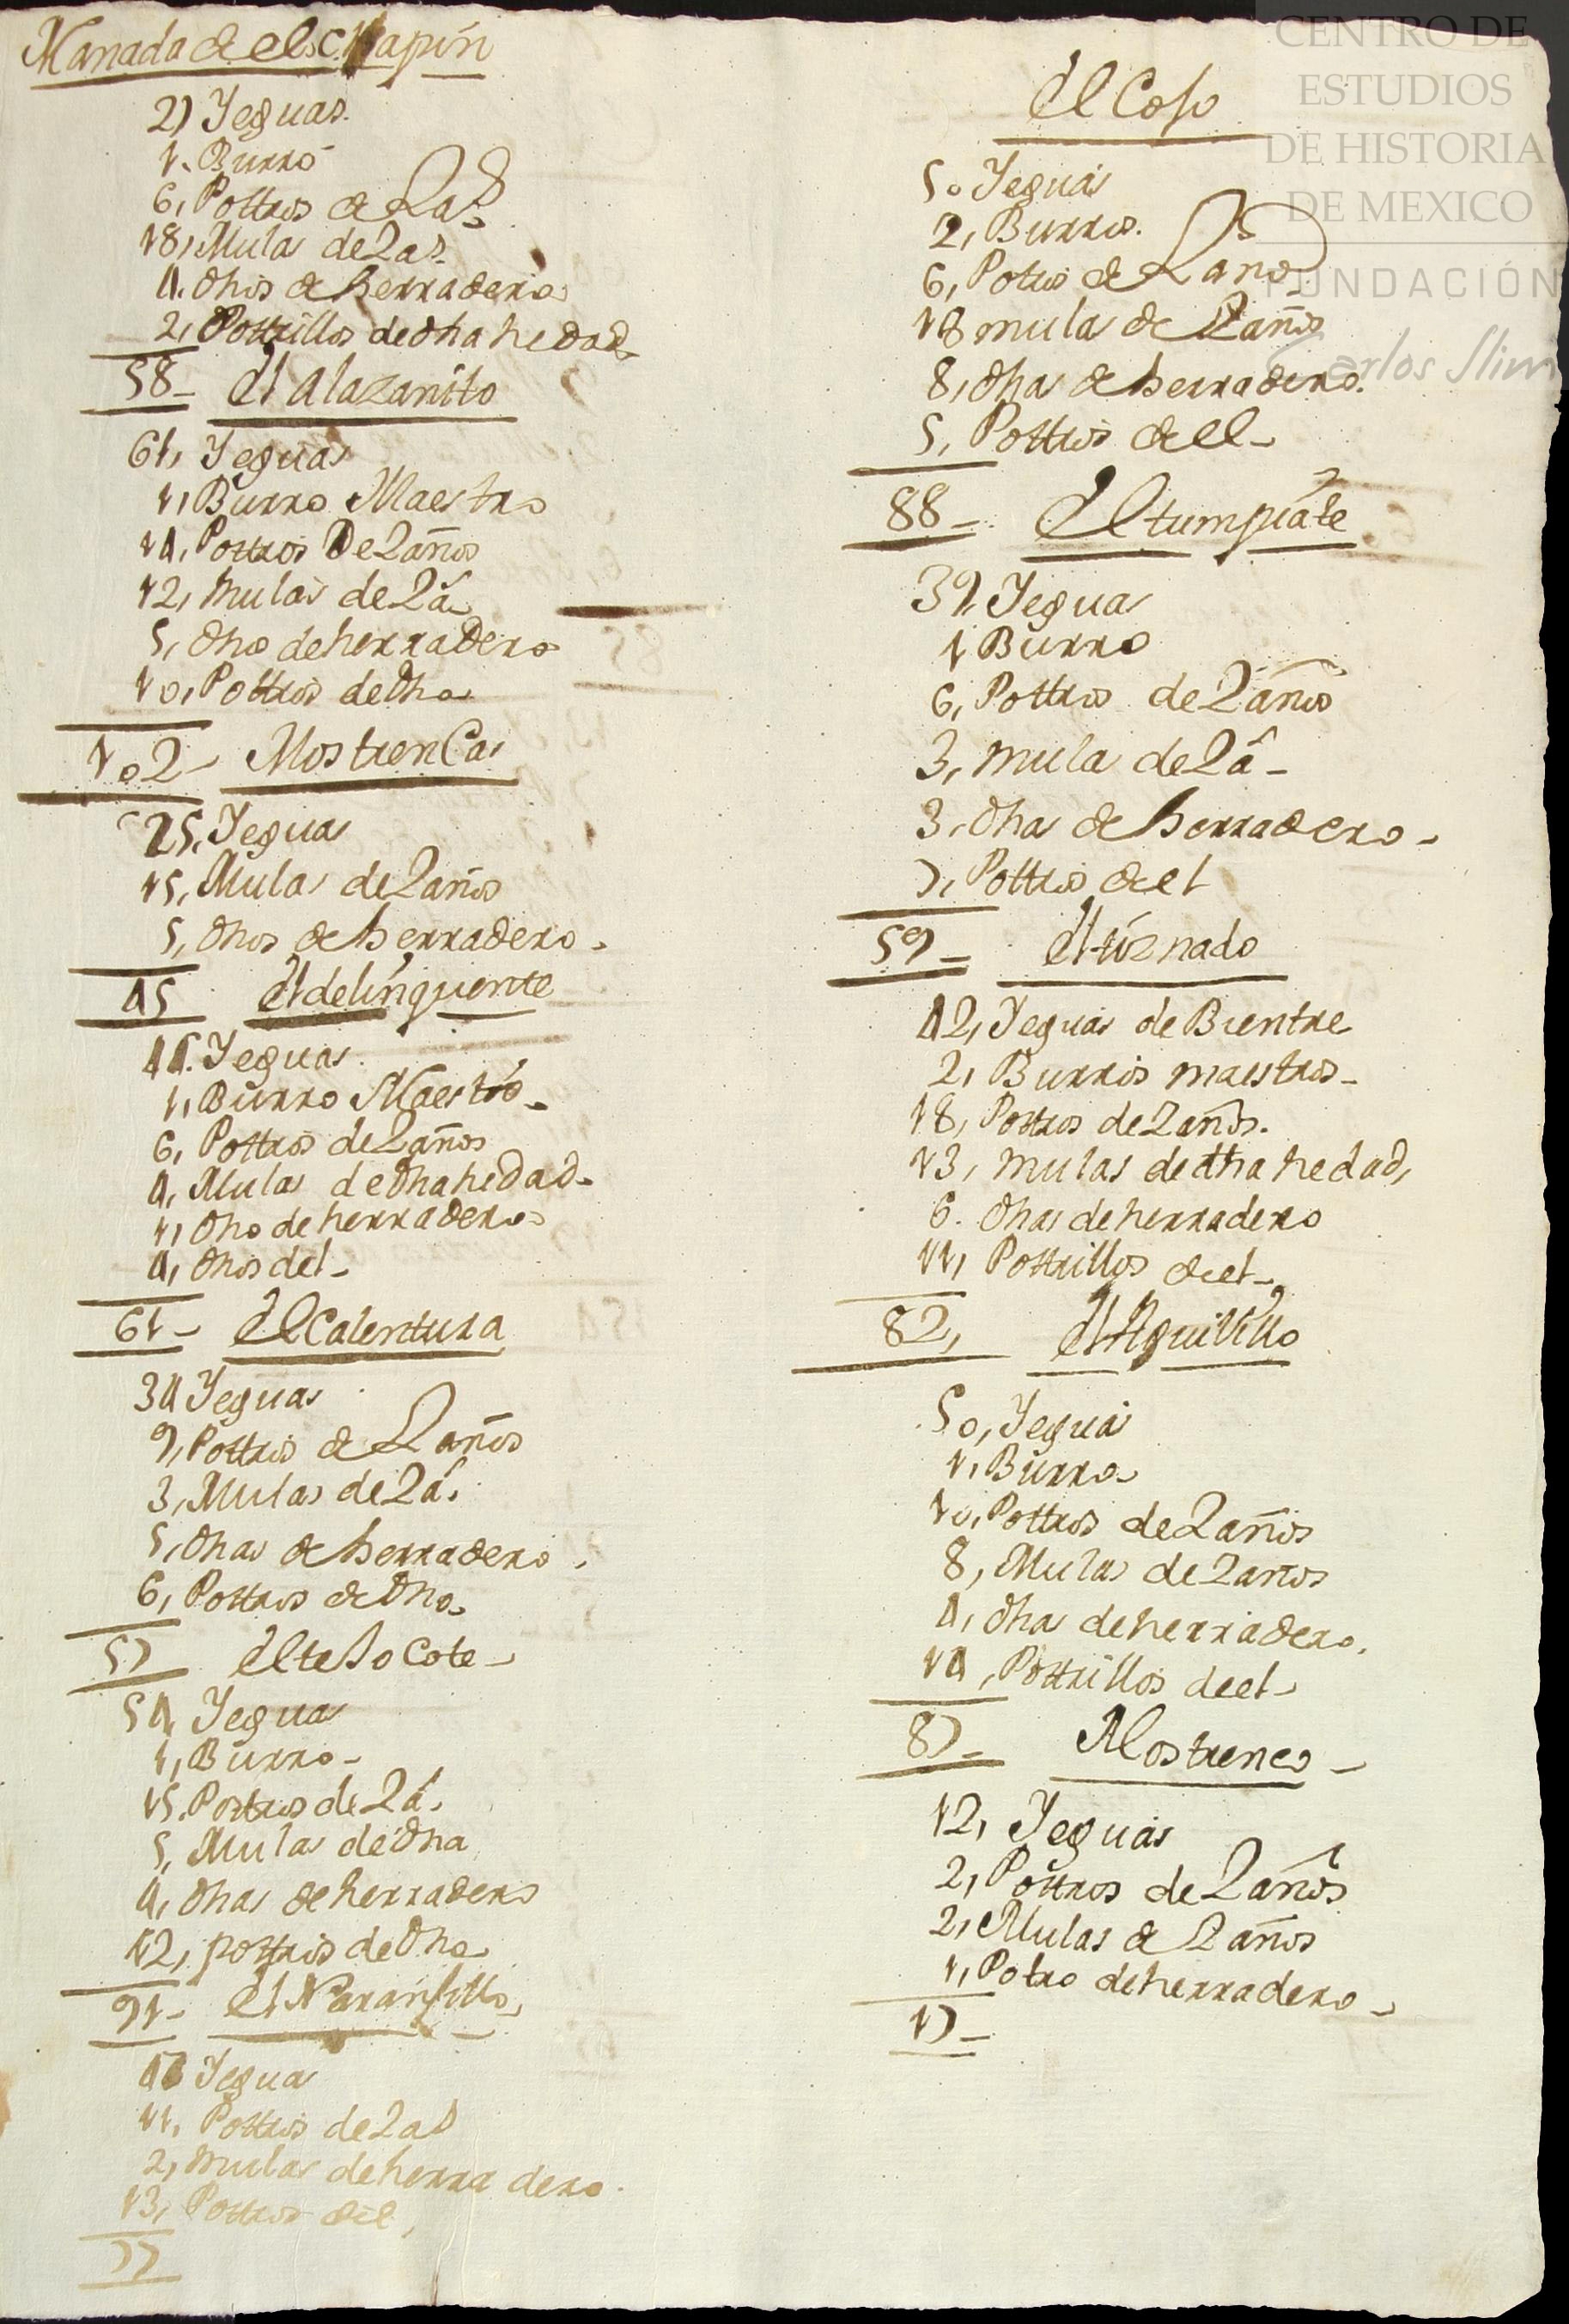 Manada de el Chapin
27 Yeguas.
1. Burro
6, Pottros de 2 as
18, Mulas de 2 as.
4. dhos de herradero
2, Pottrillos de dha hedad
58- El alazanito
61, Yeguas
1, Burro Maestro
14, Pottros De 2 años
12, Mulas de 2 a.
5, dhos de herradero
10, Pottros de dho
102- Mostrencas
25, Yeguas
15, Mulas de 2 años
5, dhos de herradero.
45 El delinquente
44. Yeguas.
1, Burro Maestro-
6, Pottros de 2 años
4, Mulas de dha hedad-
1, dho de herradero
4, dhos del-
61- El Calentura
34 Yeguas
9, Pottros de 2 años
3, Mulas de 2 a.
5, dhas de herradero.
6, Pottros de dho.
57 El tesocote-
54, Yeguas
1, Burro-
15. Pottros de 2 a.
5, Mulas de dha
4, dhas de herradero
12, pottros de dho
91- El Naranjillo
Yeguas
11, Pottros de 2 as
2, Mulas de herradero.
13, Pottros del,
77
El Coso
50 Yeguas
2, Burros.
6, Potros de 2 anos
18 mulas de 2 años
8, dhas de herradero.
5, Pottros de el-
88- El tumpiate
39, Yeguas
1 Burro
6, Pottros de 2 años
3, mulas de 2 a-
3, dhas de herradero-
7, Pottros de el
59- El tiznado
42, Yeguas de Bientre
2, Burros maestros-
18, Pottros de 2 años.
13, mulas de dha hedad,
6. dhas de herradero
11, Pottrillos de el-
82, El Aguililla
50, Yeguas
1, Burro-
10, Pottros de 2 años
8, Mulas de 2 años
4, dhas de herradero.
14, Pottrillos de el-
87- Mostrenco-
12, Yeguas
2, Pottros de 2 años
2, Mulas de 2 años
1, Potro de herradero-
17-
CENTRO DE
ESTUDIOS
DE HISTORIA
DE MEXICO
FUNDACIÓN
Carlos Slim